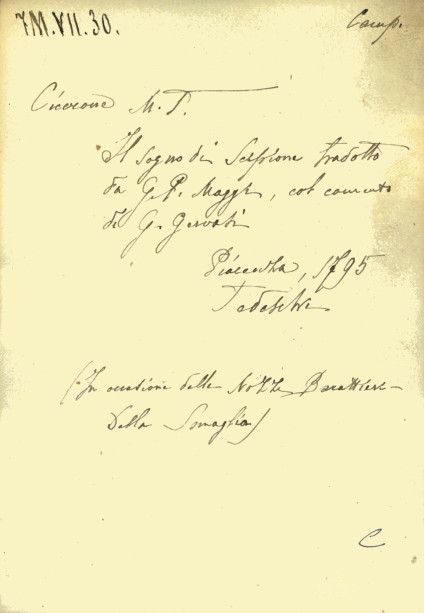 7M.VII.30.
Camp.
Cicerone M. T.
Il sogno di Scipione tradotto
da G. P. Maggi, col comento
di G. Gervasi
Piacenza, 1795
Tedeschi
(In occasione delle Nozze Barattieri-
Della Somaglia)
C